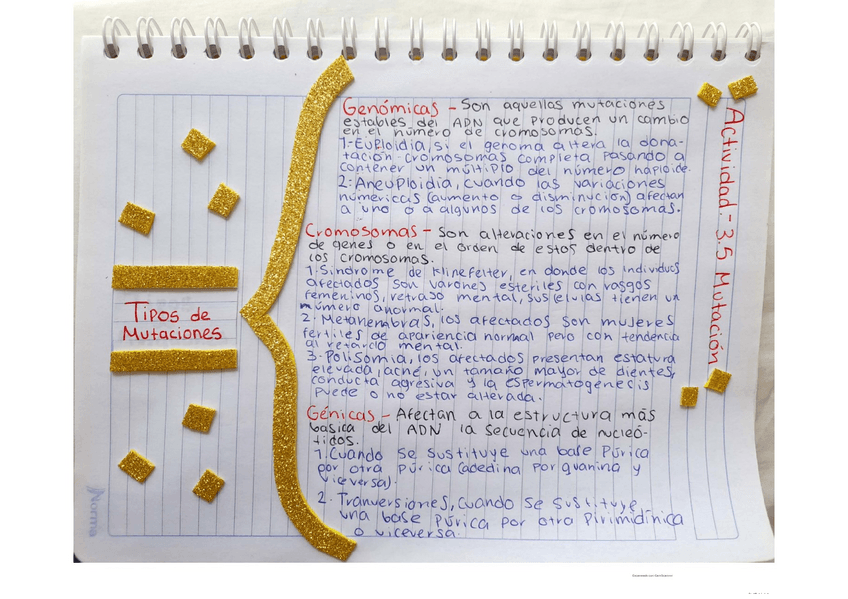 Actividad.- 3.5 Mutación
Tipos de
Mutaciones
Genómicas - Son aquellas mutaciones
estables del ADN que producen un cambio
en el número de cromosomas.
1.-Euploidia, si el genoma altera la dona-
tación cromosomas completa pasando a
contener un múltiplo del número haploide.
2.-Aneuploidia, cuando las variaciones
númericas (aumento o disminución) afectan
a uno o a algunos de los cromosomas.
Cromosomas - Son alteraciones en el número
de genes o en el orden de estos dentro de
los cromosomas.
1.Sindrome de Klinefelter, en donde los individuos
afectados son varones esteriles con rasgos
femeninos, retraso mental, sus celulas tienen un
número anormal.
2. Metahembras, los afectados son mujeres
fertiles de apariencia normal pero con tendencia
al retardo mental.
3. Polisomia, los afectados presentan estatura
elevada, acné, un tamaño mayor de dientes,
conducta agresiva y la espermatogénesis
puede o no estar alterada.
Génicas - Afectan a la estructura más
basica del ADN la secuencia de nucleó-
tidos.
1.Cuando se sustituye una base Púrica
por otra púrica (adedina por guanina y
viceversa).
2. Tranversiones, cuando se sustituye
una base púrica por otra pirimidínica
o viceversa.
Norma